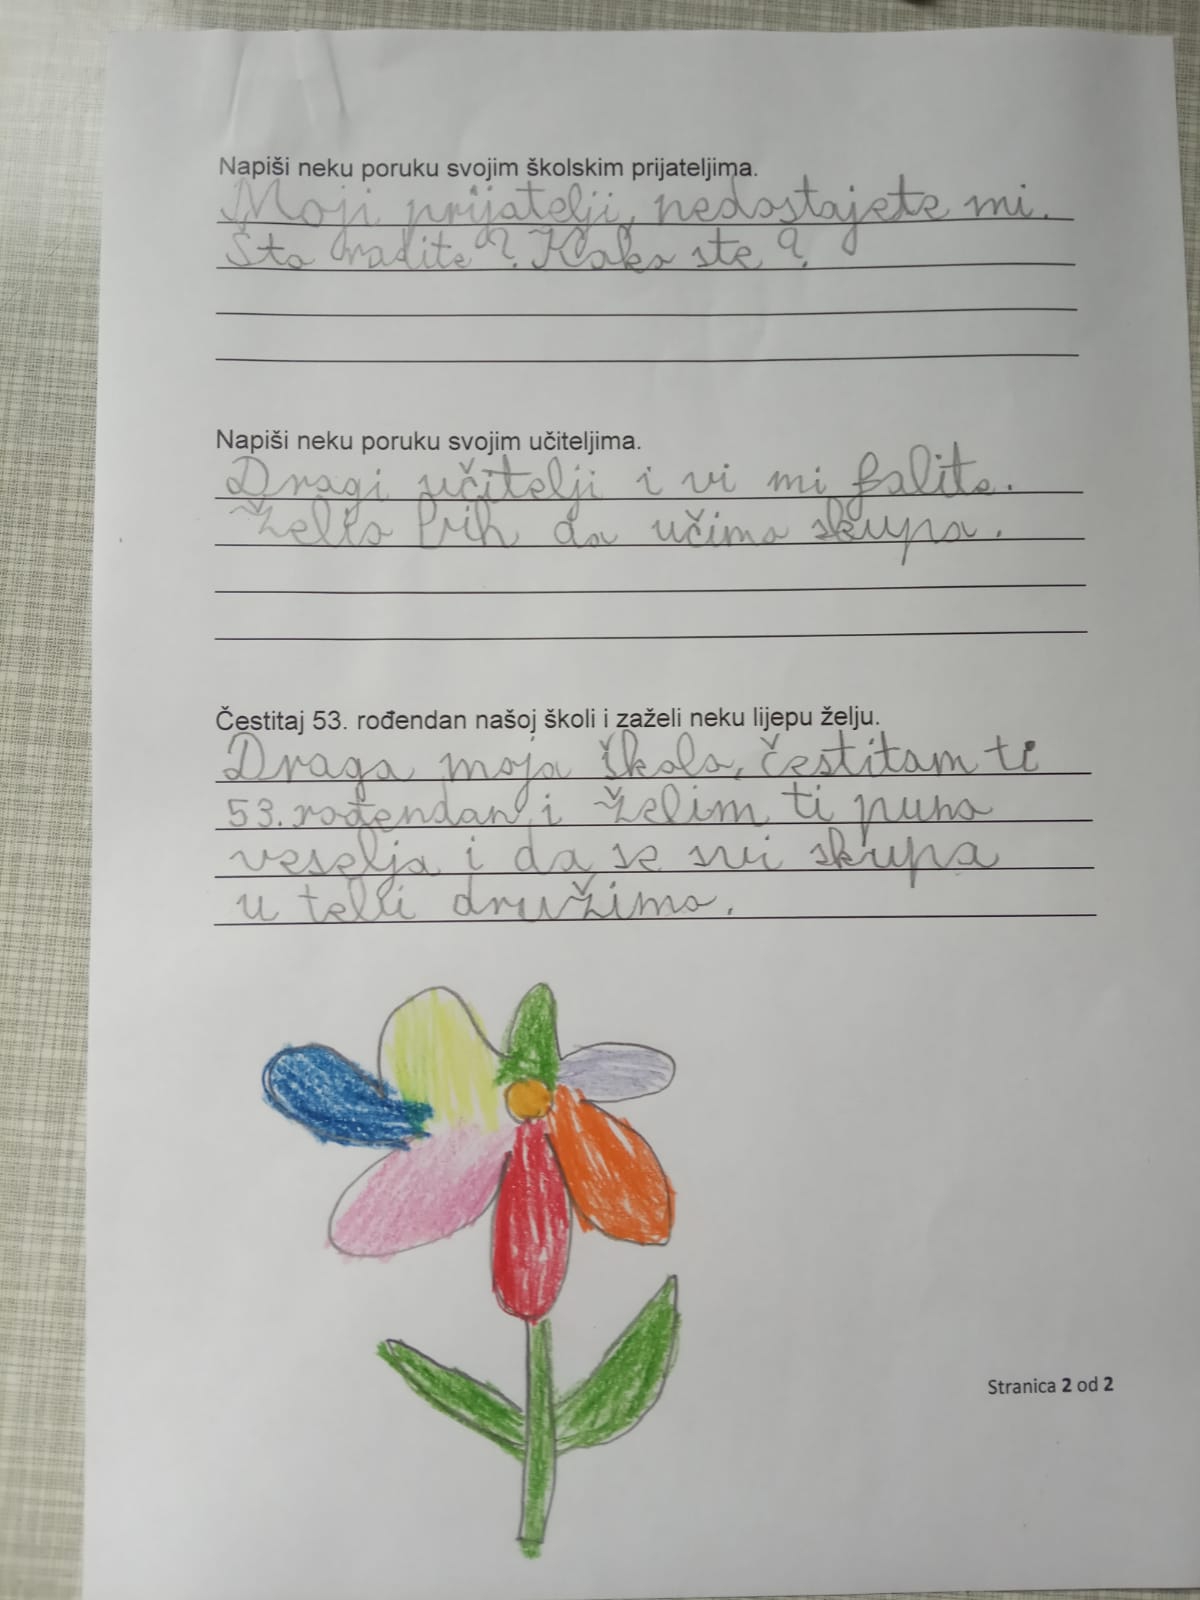 Napiši neku poruku svojim školskim prijateljima.
Moji prijatelji, nedostajete mi.
Što radite? Kako ste?
Napiši neku poruku svojim učiteljima.
Dragi učitelji i vi mi falite.
Želio bih da učimo skupa.
Čestitaj 53. rođendan našoj školi i zaželi neku lijepu želju.
Draga moja školo, čestitam ti
53. rođendan i želim ti puno
veselja i da se svi skupa
u tebi družimo.
Stranica 2 od 2